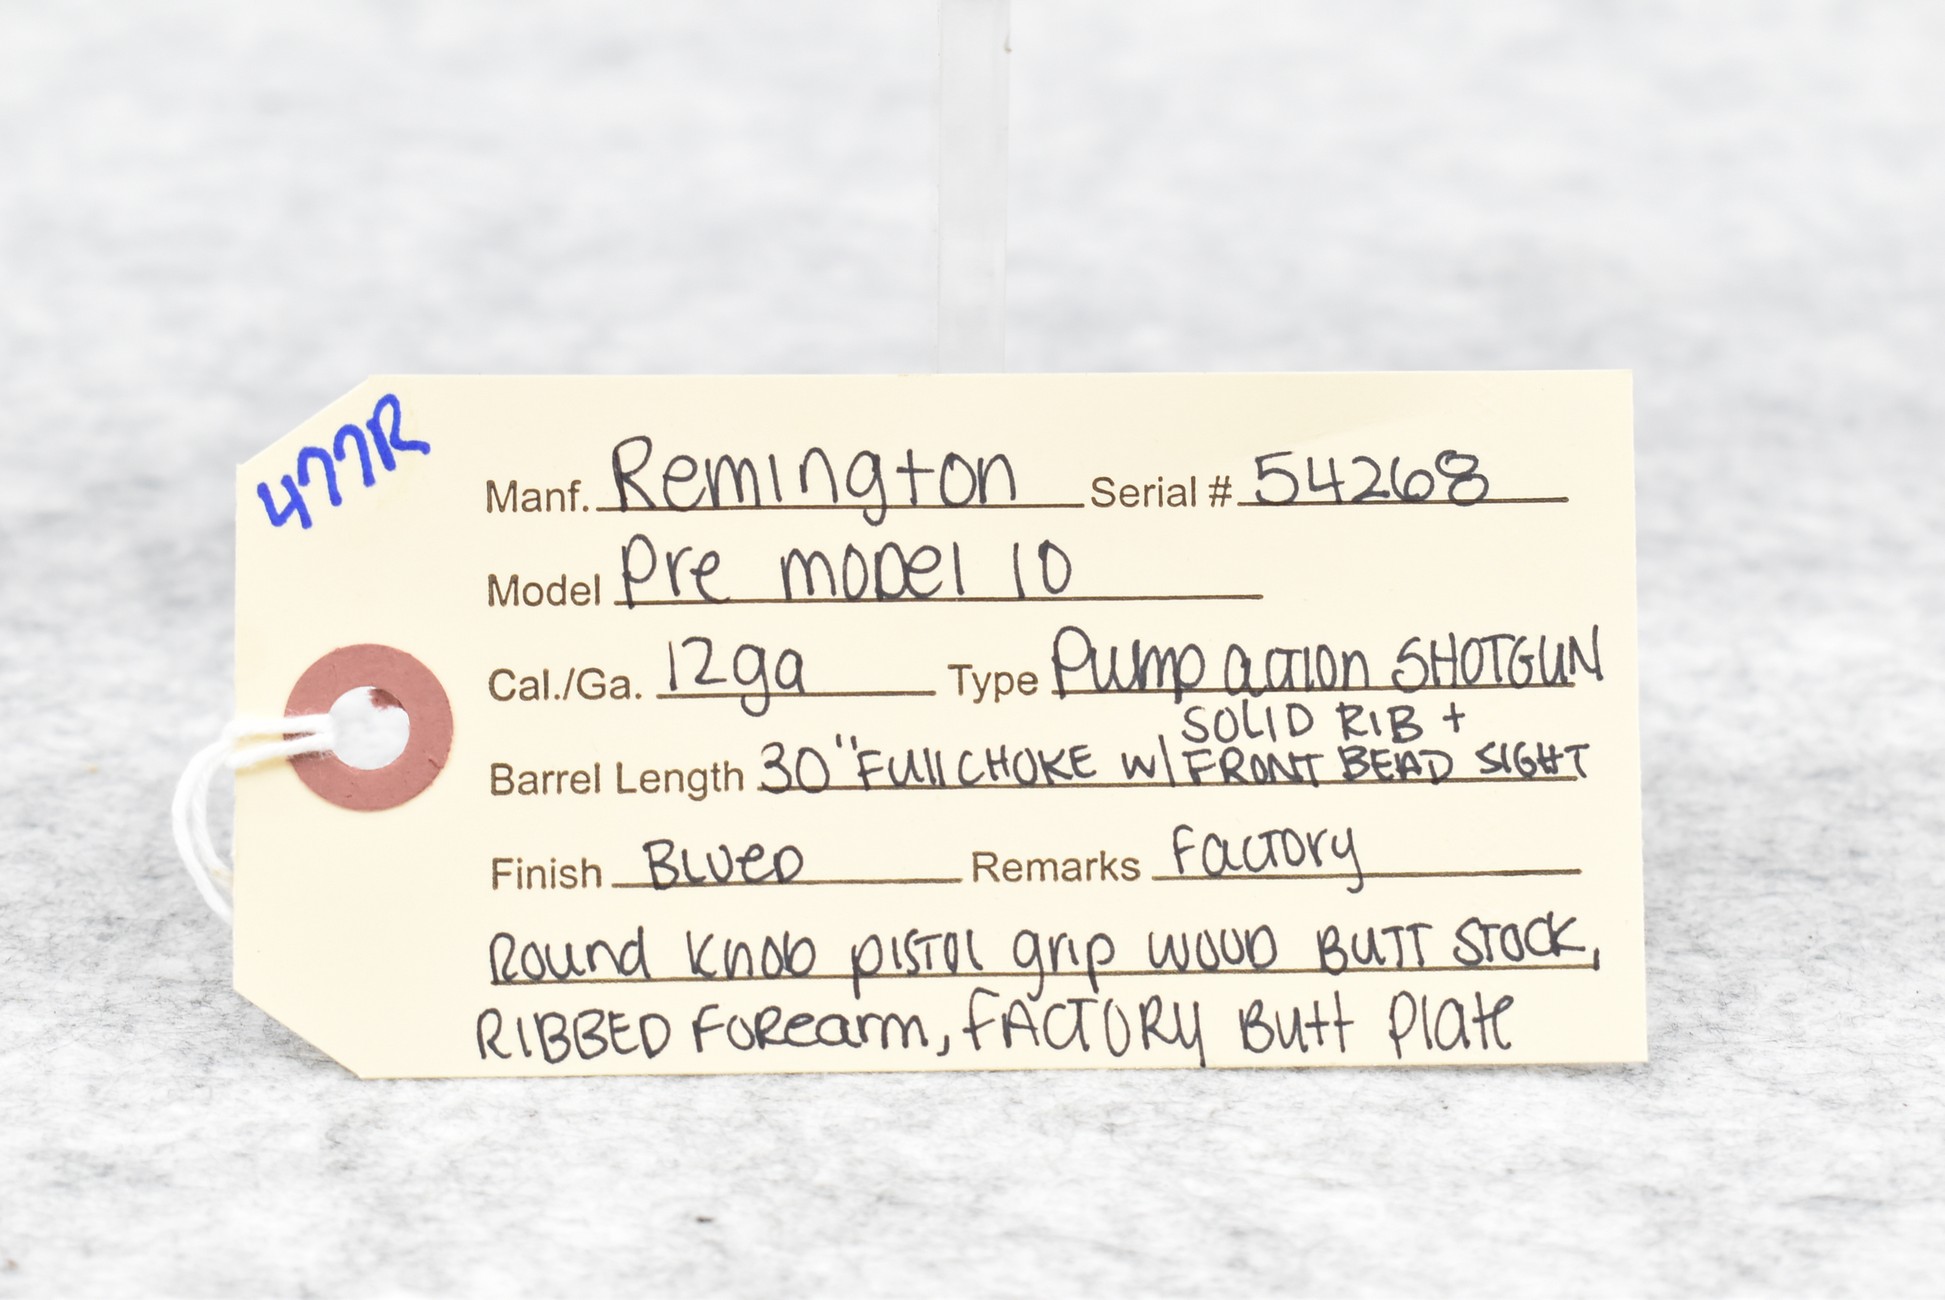 477R
Manf. Remington Serial # 54268
Model Pre Model 10
Cal./Ga. 12ga Type Pump action SHOTGUN
SOLID RIB +
Barrel Length 30" Full CHOKE w/ FRONT BEAD SIGHT
Finish Blued Remarks Factory
Round Knob pistol grip wood Butt Stock,
RIBBED Forearm, FACTORY Butt Plate